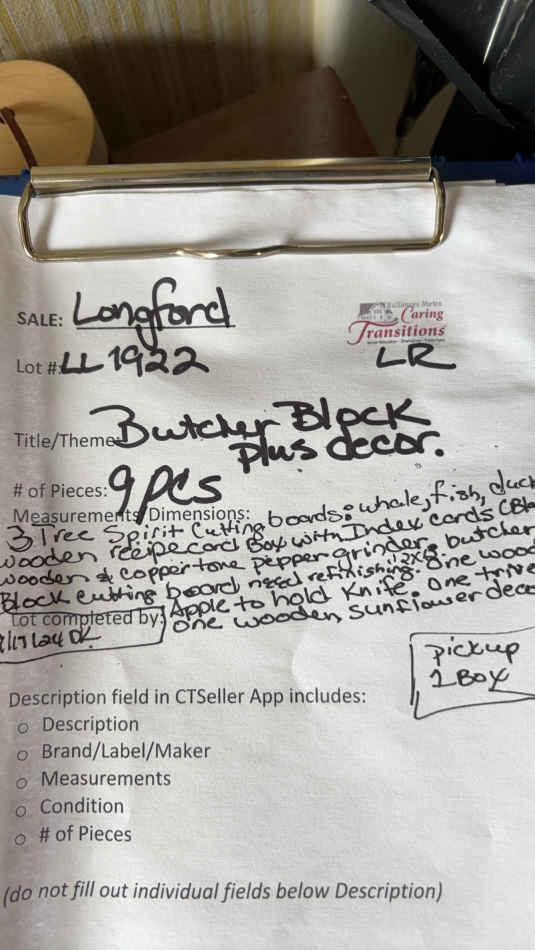 SALE: Longford
Caring
Transitions
Lot #: LL 1922
LR
Title/Theme: Butcher Block
plus decor.
# of Pieces: 9 pcs
Measurements/Dimensions:
3 Tree Spirit Cutting boards: whale, fish, duck
wooden recipecard Box with Index cards
wooden & coppertone pepper grinder. butcher
Block cutting board need refinishing. 12x18 One wood
Apple to hold Knife. One trive
one wooden sunflower deco
Lot completed by:
DK
pickup
1 Box
Description field in CTSeller App includes:
o Description
o Brand/Label/Maker
o Measurements
o Condition
o # of Pieces
(do not fill out individual fields below Description)